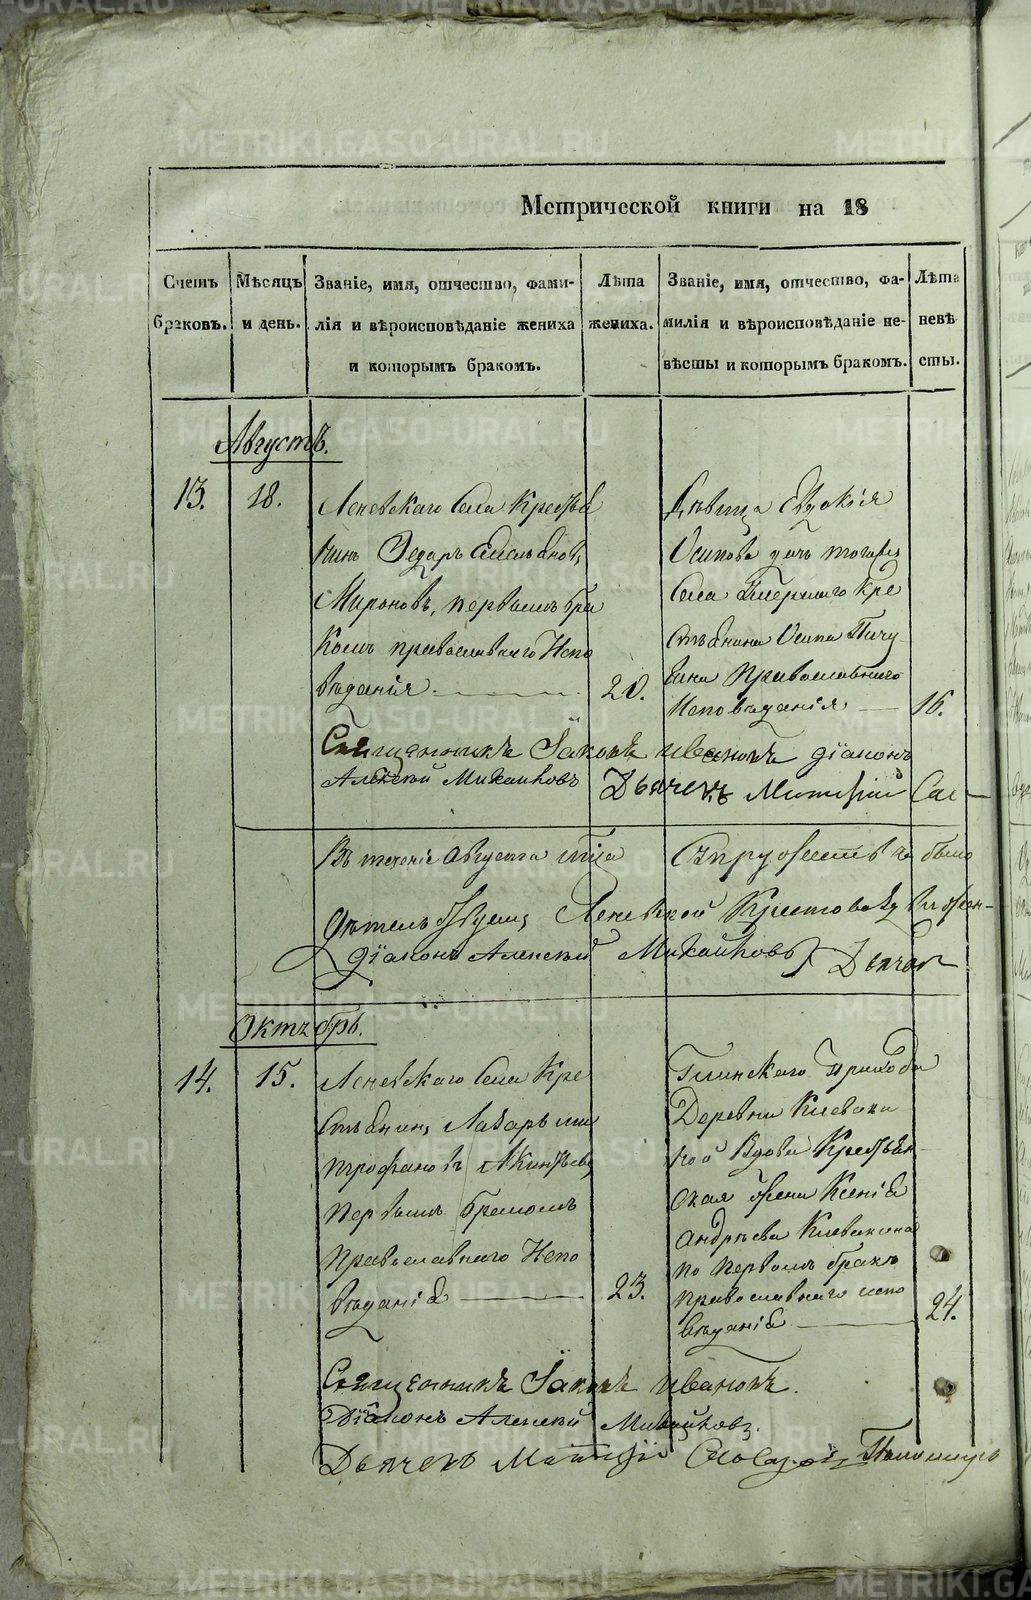 Метрической книги на 18
Счетъ браковъ.
Мѣсяцъ и день.
Званіе, имя, отчество, фами-
лія и вѣроисповѣданіе жениха
и которымъ бракомъ.
Лѣта жениха.
Званіе, имя, отчество, фа-
милія и вѣроисповѣданіе не-
вѣсты и которымъ бракомъ.
Лѣта невѣ
сты.
Августъ.
13. 18.
Леневскаго Села Крестья
нинъ Ѳедоръ Емельяновъ
Мироновъ, первымъ бра
комъ православнаго Испо
вѣданія. 20.
Дѣвица Евдокія
Осипова дочь тогожъ
Села Крe
стьянина Осипа Пичу
гина Православнаго
Исповѣданія 16.
Священникъ Іаковъ Ивановъ Діаконъ
Алексѣй Михайловъ Дьячекъ
Въ теченіе Августа м‑ца было
Леневской
Діаконъ Алексѣй Михайловъ Дьячек
Октябрь.
14. 15.
Леневскаго Села Кре
стьянинъ Лазарь Ми
трофановъ Акинѳьевъ
Первымъ бракомъ
Православнаго Испо
вѣданія 23.
Глинскаго прихода
Деревни Клеваки
ной Вдова Крестьян
ская жена Ксенія
Андрѣева Клевакина
по первомъ бракѣ
православнаго испо
вѣданія 24.
Священникъ Іаковъ Ивановъ.
Діаконъ Алексѣй Михайловъ.
Дьячекъ
METRIKI.GASO-URAL.RU